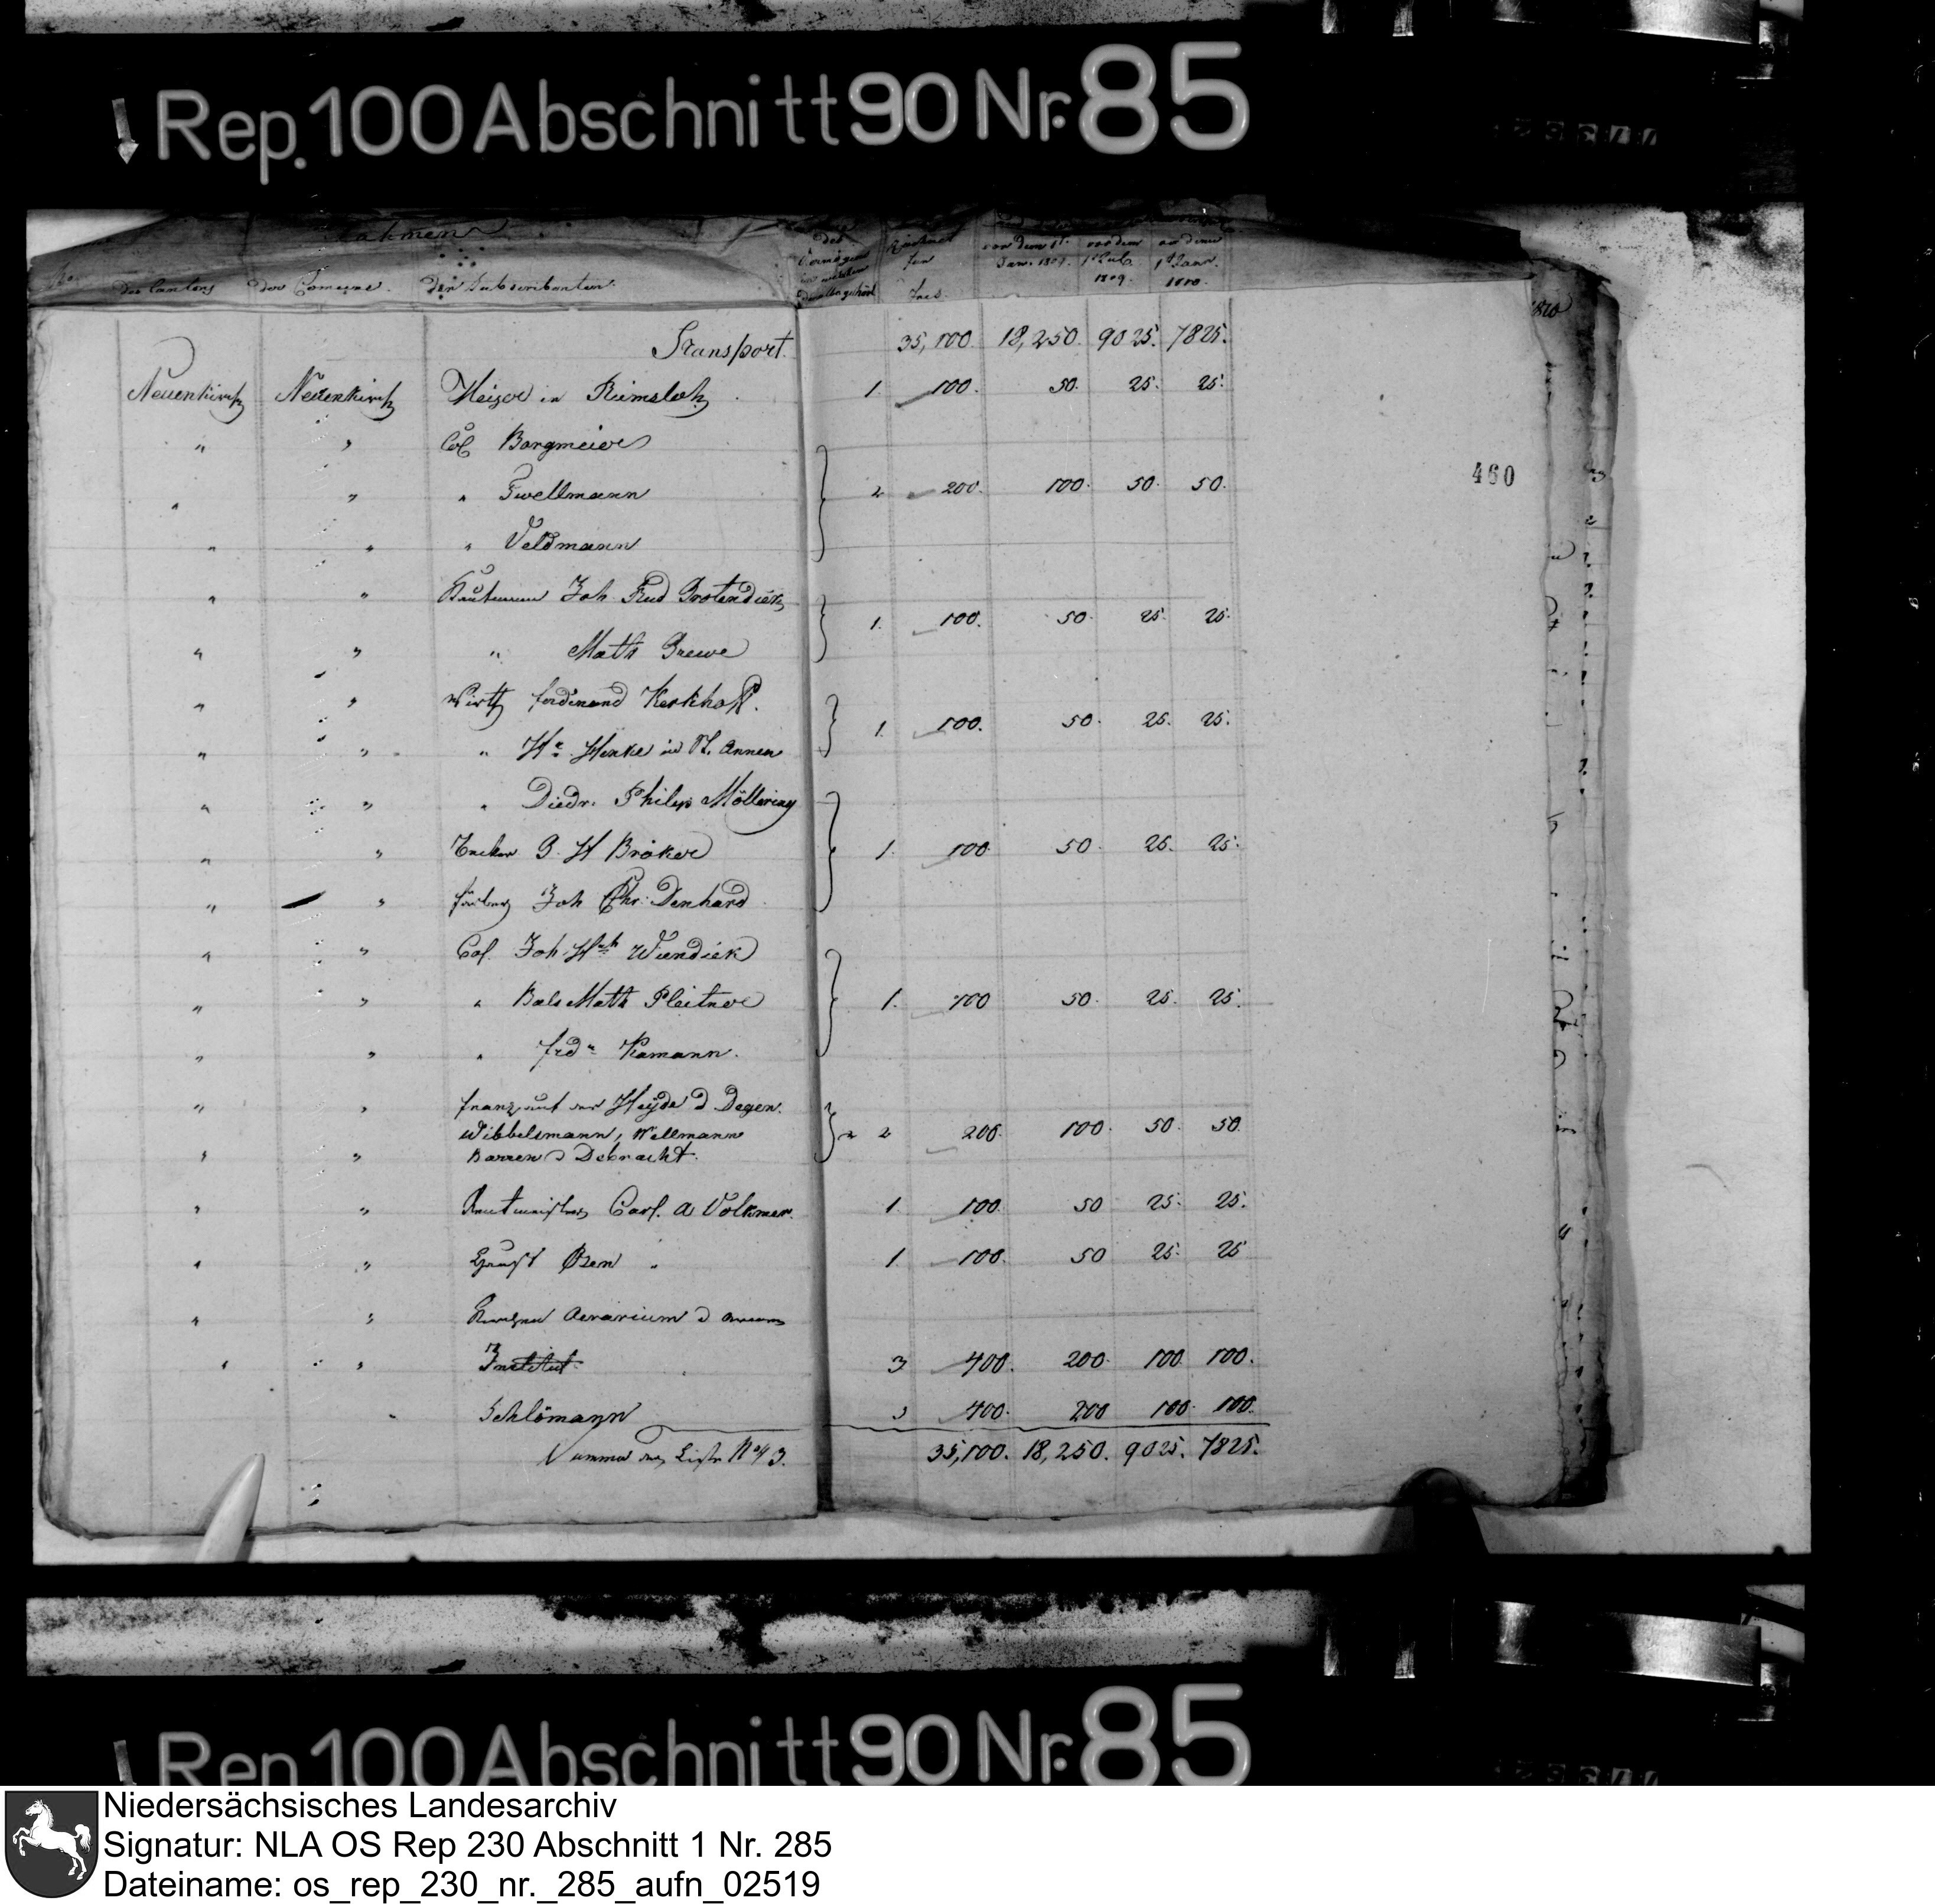 Rep. 100 Abschnitt 90 Nr. 85
Nahmen
des Cantons der Comune. der Subscribenten.
des Vermögens zu welcher derselbe gehört
Fres.
vor dem 1t. Jan. 1809. vor dem 1t Jul. 1809. vor dem 1t Janr. 1810.
Transport. 35,100. 18,250. 9025. 7825.
Neuenkirch Neuenkirch Meiger in Riemsloh 1. 100. 50. 25. 25.
" " Col Borgmeier
" " " Twellmann 2 200. 100. 50. 50.
" " " Veldmann
" " Joh Frid Grotendiek 1. 100. 50. 25. 25.
" " " Math Grewe
" " Wirth Ferdinand Kerkhoff. 1. 100. 50. 25. 25.
" " " Hr. Henke in St. Annen
" " " Diedr. Philip Möllering
" " G. H Bröker 1. 100 50. 25. 25.
" " Joh Chr. Denhard
" " Col. Joh. Hch Wiendiek
" " " Bals Math Pleitner 1. 100 50. 25. 25.
" " " Frd. Kamann.
" " Franz auf der Heyde d Degen.
Wibbelsmann, Wellmann 2 2 200. 100. 50. 50.
" " Barren d Debracht.
" " Rentmeister Carl. A Volkmer. 1 100. 50 25. 25.
" " Ernst Ozen " 1 100. 50 25. 25
" " Aerarium d
" " Institut. 3 400. 200. 100. 100.
" Schlömann 3 400. 200 100. 100.
Summa der Liste No 43. 35,100. 18,250. 9025. 7825.
460
1810
Rep. 100 Abschnitt 90 Nr. 85
Niedersächsisches Landesarchiv
Signatur: NLA OS Rep 230 Abschnitt 1 Nr. 285
Dateiname: os_rep_230_nr._285_aufn_02519